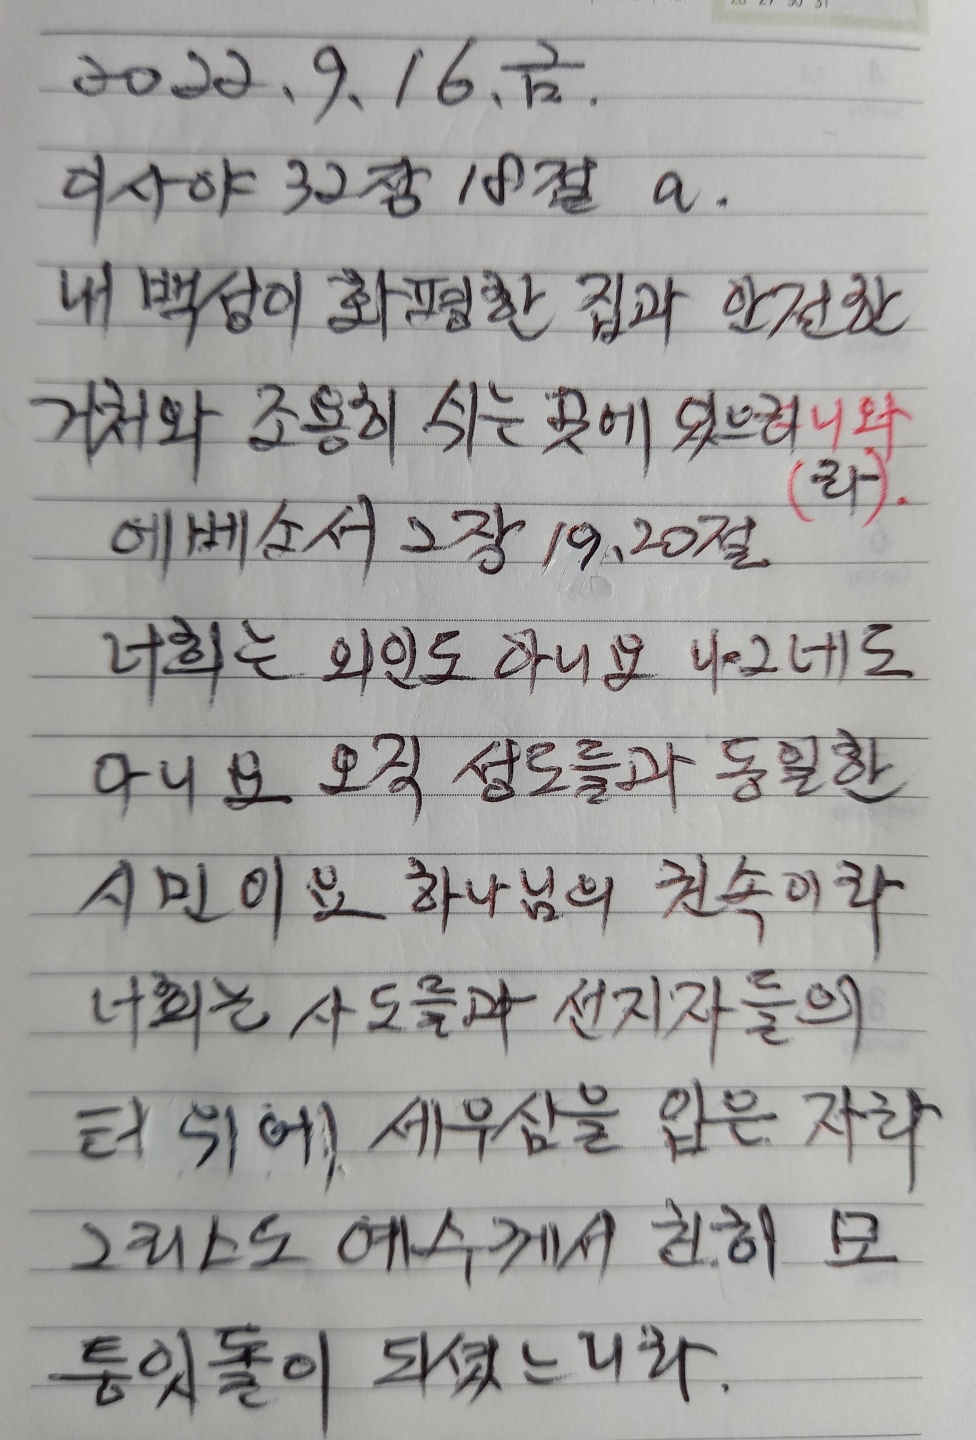 2022. 9. 16. 금.
이사야 32장 18절 a.
내 백성이 화평한 집과 안전한
거처와 조용히 쉬는 곳에 있으려니와
(라).
에베소서 2장 19, 20절
너희는 외인도 아니요 나그네도
아니요 오직 성도들과 동일한
시민이요 하나님의 권속이라
너희는 사도들과 선지자들의
터 위에 세우심을 입은 자라
그리스도 예수께서 친히 모
퉁잇돌이 되셨느니라.